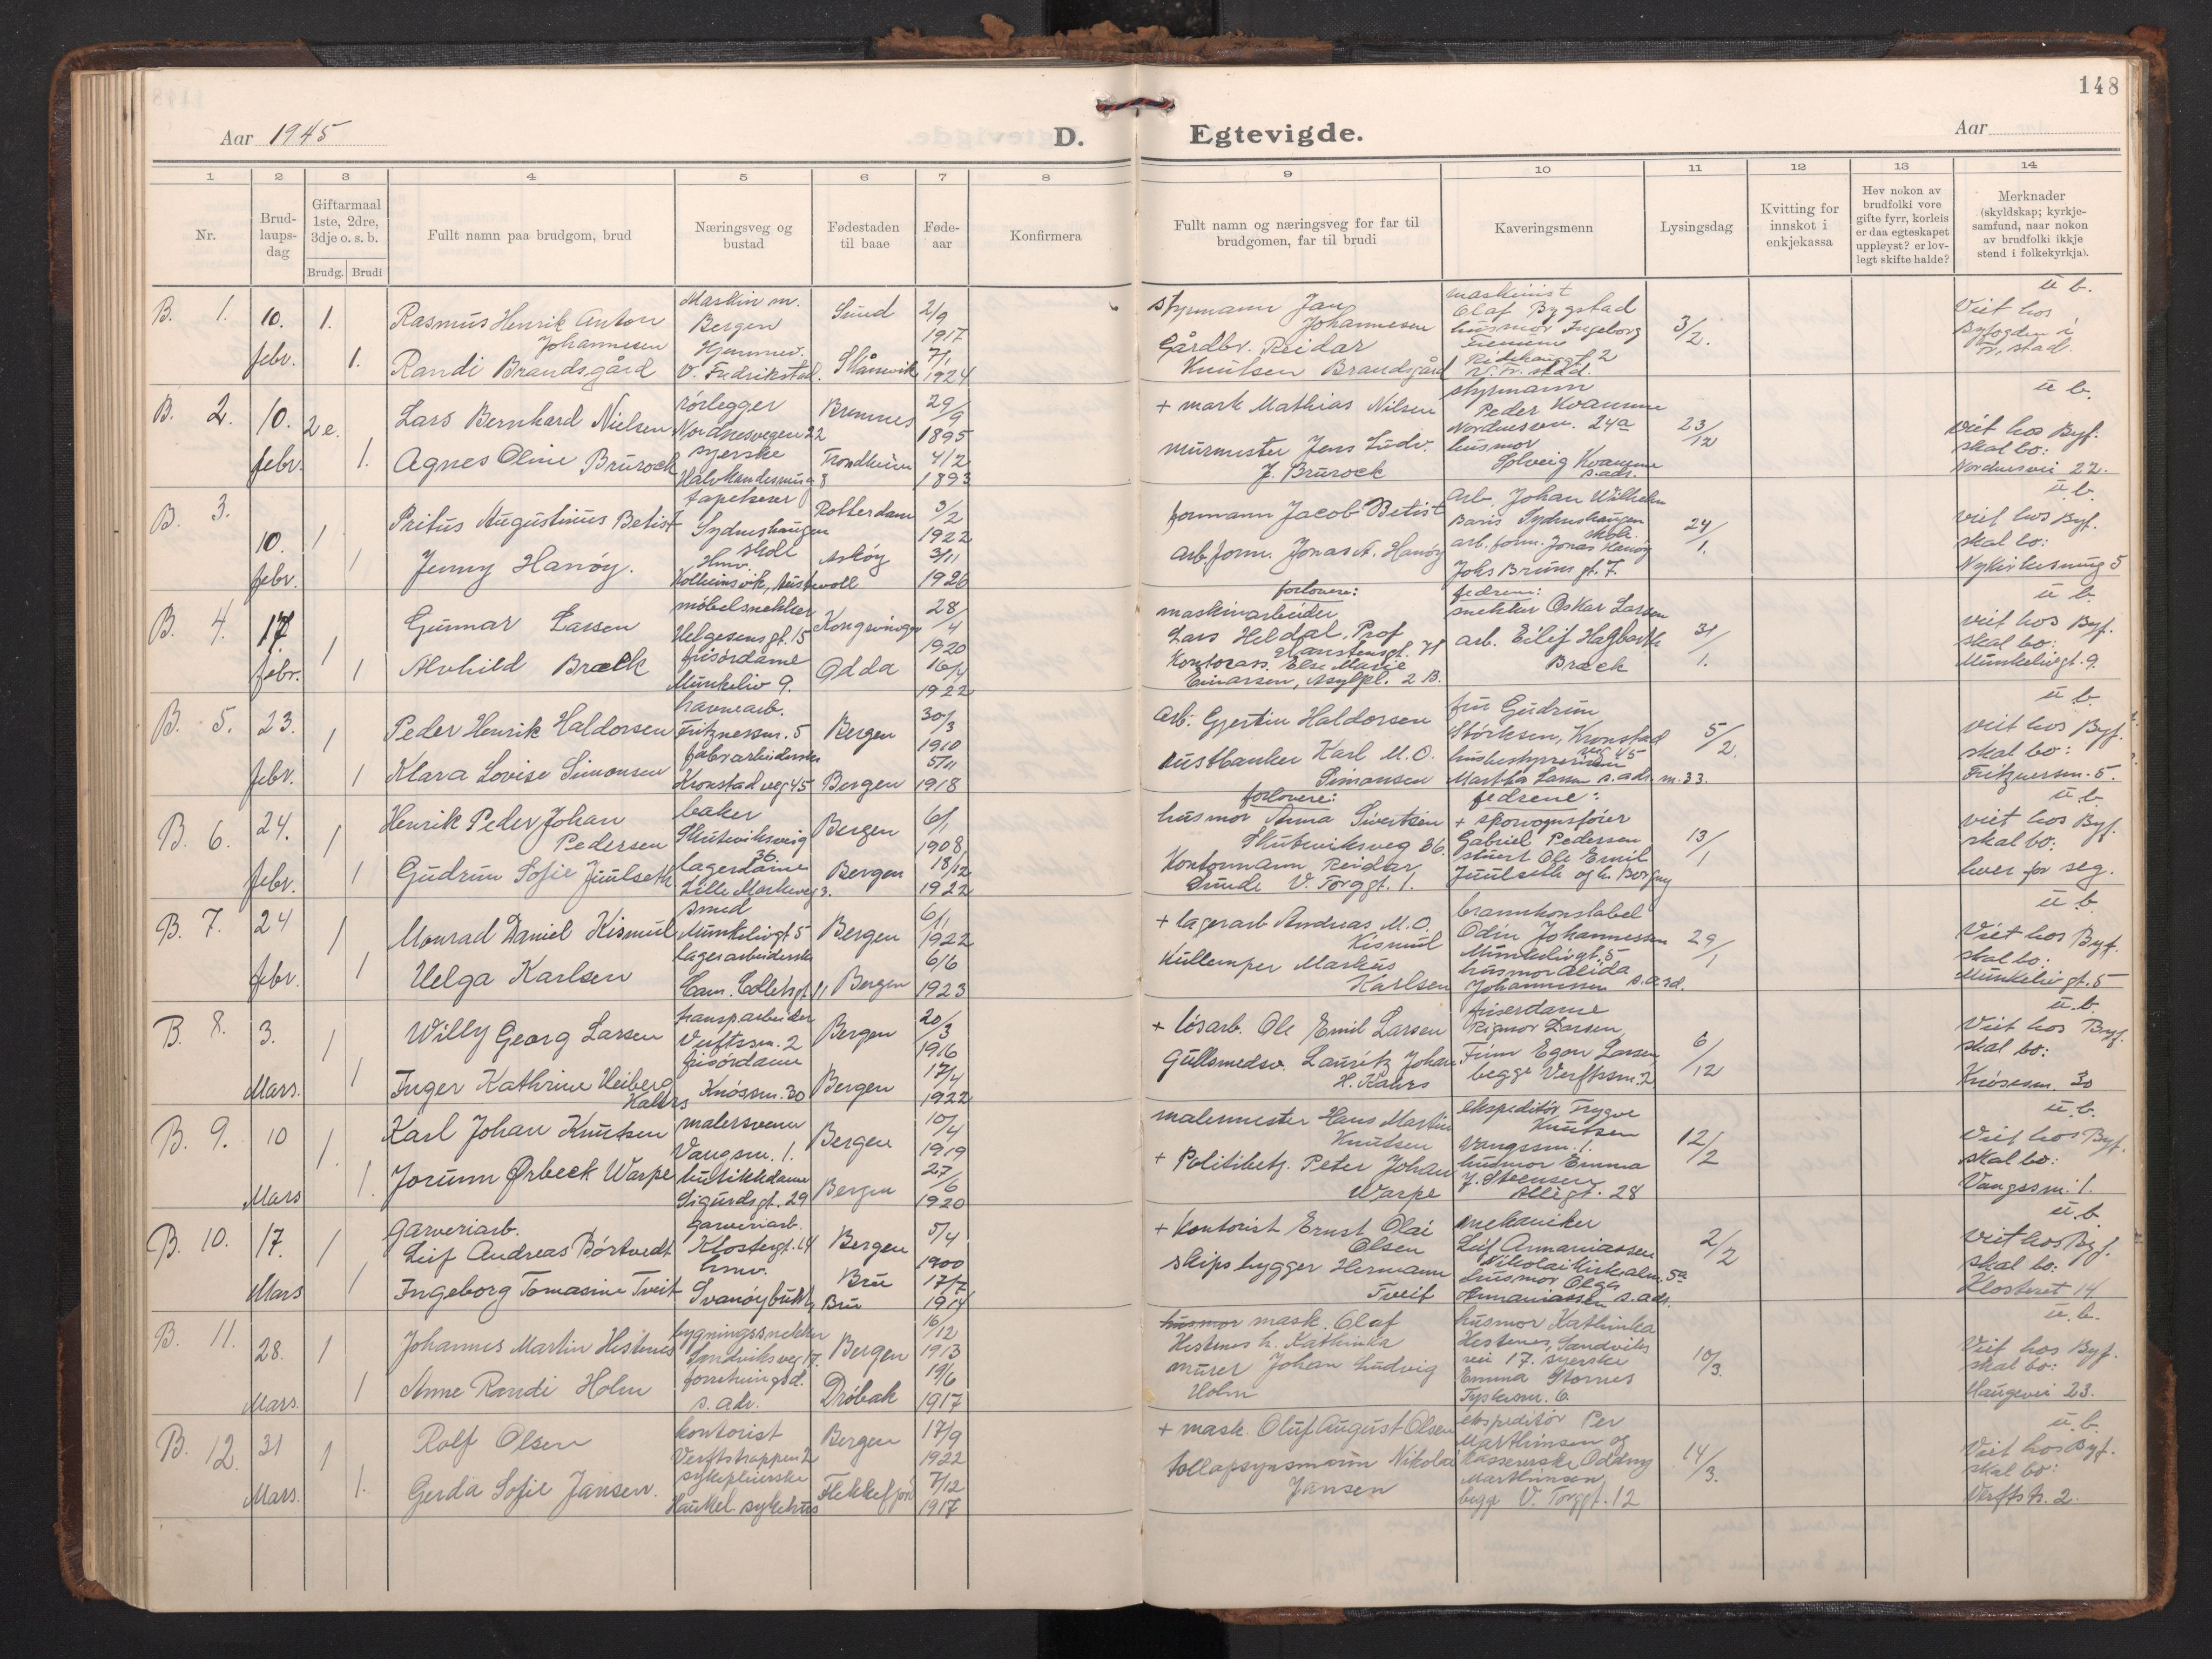 148
Aar 1945
D.
Egtevigde.
Aar
1 2 3 4 5 6 7 8 9 10 11 12 13 14
Nr.
Brud-
laups-
dag
Giftarmaal
1ste, 2dre,
3dje o. s. b.
Brudg. Brudi
Fullt namn paa brudgom, brud
Næringsveg og
bustad
Fødestaden
til baae
Føde-
aar
Konfirmera
Fullt namn og næringsveg for far til
brudgomen, far til brudi
Kaveringsmenn
Lysingsdag
Kvitting for
innskot i
enkjekassa
Hev nokon av
brudfolki vore
gifte fyrr, korleis
er daa egteskapet
uppleyst? er lov-
legt skifte halde?
Merknader
(skyldskap; kyrkje-
samfund, naar nokon
av brudfolki ikkje
stend i folkekyrkja).
B. 1. 10. febr. 1. 1.
Rasmus Henrik Anton
Johannesen
Randi Brandsgård
Maskin m.
Bergen
Hjemmev.
V. Fredrikstad.
Sund
Skånevik
2/9
1917
7/1
1924
styrmann Jan
Johannesen
Gårdbr. Reidar
Knutsen Brandsgård
maskinist
Olaf Bygstad
husmor Ingeborg
3/2.
u b.
Viet hos
Byfogden i
Fr. stad.
B. 2. 10. febr. 2 e. 1.
Lars Bernhard Nielsen
Agnes Oline Brurock
rörlegger
Nordnesvegen 22
syerske
8
Bremnes
Trondheim
29/9
1895
4/2
1893
+ mark Mathias Nilsen
murmester Jens Ludv.
J. Brurock
styrmann
Peder Kvamme
Nordnesvn. 24a
husmor
Solveig Kvamme
s. ads.
23/12
u b.
viet hos Byf.
skal bo:
Nordnesvei 22.
B. 3. 10. febr. 1 1
Pritus Augustinus Betist
Jenny Hanøy.
tapetserer
Sydneshaugen
skole
Hmv.
Kolbeinsvik, Austevoll
Rotterdam
Askøy
3/2
1922
3/11
1926
formann Jacob Betist
arb. form. Jonas A. Hanøy
arb. Johan Wilhelm
Baris Sydneshaugen
skole.
arb. form. Jonas Hanøy
Johs Bruns gt. 7.
24/1.
u b.
viet hos Byf.
skal bo:
Nykirkesmug 5
B. 4. 17. febr. 1 1
Gunnar Larsen
Alvhild Bræck
möbelsnekker
Helgesensgt. 15
frisördame
Munkeliv 9.
Kongsvinger
Odda
28/4
1920
16/4
1922
forlovere:
maskinarbeider
Lars Heldal, Prof
Hanstensgt. 71
Kontorass. Else Marie
Einarsen, Asylpl. 2 B.
fedrene:
snekker Oskar Larsen
arb. Eilif Hagbarth
Bræck
31/1.
u b.
viet hos Byf.
skal bo:
Munkelivgt. 9.
B. 5. 23. febr. 1 1
Peder Henrik Haldorsen
Klara Lovise Simonsen
havnearb.
Fritznersm. 5
fabr. arbeiderske
Kronstadveg 45
Bergen
Bergen
30/3
1910
5/11
1918
arb: Gjertin Haldorsen
rustbanker Karl M. O.
Simonsen
fru Gudrun
Störksen, Kronstad
veg 45
husbestyrerinne
Martha Larsen s. ads. m. 33.
5/2.
u b.
viet hos Byf.
skal bo:
Fritznersm. 5.
B. 6. 24. febr. 1 1
Henrik Peder Johan
Pedersen
Gudrun Sofie Juulseth
baker
Skuteviksveg
36
lagerdame
Lille Markeveg 3.
Bergen
Bergen
6/1
1908
18/12
1922
forlovere:
husmor Anna Sivertsen
Skuteviksveg 36.
Kontormann Reidar
Lunde V. Torggt. 1.
fedrene:
+ sporvognsförer
Gabriel Pedersen
stuert Ole Emil
Juulseth og h. Borgny
13/1
u b.
viet hos Byf.
skal bo:
hver for seg.
B. 7. 24 febr. 1 1
Monrad Daniel Kismul
Helga Karlsen
smed
Munkelivgt 5
lagerarbeiderske
Cam. Collettsgt 11
Bergen
Bergen
6/11
1922
6/6
1923
+ lagerarb Andreas M. O.
Kismul
Kullemper Markus
Karlsen
brannkonstabel
Odin Johannessen
Munkelivgt. 5
husmor Alida
Johannessen s. asd.
29/1
u b.
Viet hos Byf.
skal bo:
Munkeliv gt. 5
B. 8. 3. Mars. 1 1
Willy Georg Larsen
Inger Kathrine Heiberg
Kahrs
transp arbeider
Verftssm. 2
frisördame
Knössm. 30
Bergen
Bergen
20/3
1916
17/4
1922
+ lösarb. Ole Emil Larsen
Gullsmedsv. Lauritz Johan
H. Kahrs
friserdame
Rigmor Larsen,
Finn Egon Larsen
begge Verftssm. 2
6/12
u. b.
Viet hos Byf.
skal bo:
Knösesm. 30
B. 9. 10 Mars 1. 1.
Karl Johan Knutsen
Jorunn Ørbeck Warpe
malersvenn
Vangsm. 1.
butikkdame
Sigurdsgt. 29
Bergen
Bergen
10/4
1919
27/6
1920
malermester Hans Martin
Knutsen
+ Politibetj. Peter Johan
Warpe
ekspeditör Trygve
Knutsen
Vangssm. 1.
husmor Emma
J. Steensen
Allégt. 28
12/2
u. b.
Viet hos Byf.
skal bo:
Vangssm. 1.
B. 10. 17. Mars 1 1
Garveriarb.
Leif Andreas Börtvedt
Ingeborg Tomasine Tveit
garveriarb.
Klostergt. 14
hmv.
Svanøybukt
Bergen
Bru
Bru
5/4
1900
17/7
1914
+ Kontorist Ernst Olai
Olsen
Skipsbygger Hermann
Tveit
mekaniker
Leif Annaniassen
Nikolaikirkealm. 5a
husmor Olga
Annaniassen s. ads.
2/2
u. b
viet hos Byf.
skal bo:
Klosteret 14.
B. 11. 28. Mars. 1 1
Johannes Martin Hestnes
Anne Randi Holm
bygningssnekker
Sandviksveg 17.
forretningsd.
s. adr.
Bergen
Dröbak
16/12
1913
19/6
1917
husmor mask. Olaf
Hestnes h. Kathinka
murer Johan Ludvig
Holm
husmor Kathinka
Hestenes, Sandviks
vei 17. syerske
Emma Stornes
Tyskesm. 6.
10/3.
u. b.
Viet hos Byf.
skal bo:
Haugevei 23.
B. 12. 31 Mars. 1 1.
Rolf Olsen
Gerda Sofie Jansen.
kontorist
Verftstrappen 2
sykepleierske
Haukel. sykehus
Bergen
Flekkefjord
17/9
1922
7/12
1917
+ mask. Oluf August Olsen
tollopsynsmann Nikolai
Jansen
ekspeditör Per
Marthinsen og
Kassererske Oddny
Marthinsen
begge V. Torggt. 12
14/3.
u. b.
Viet hos Byf.
skal bo:
Verftstr. 2.